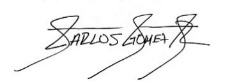 CARLOS GOMEZ R